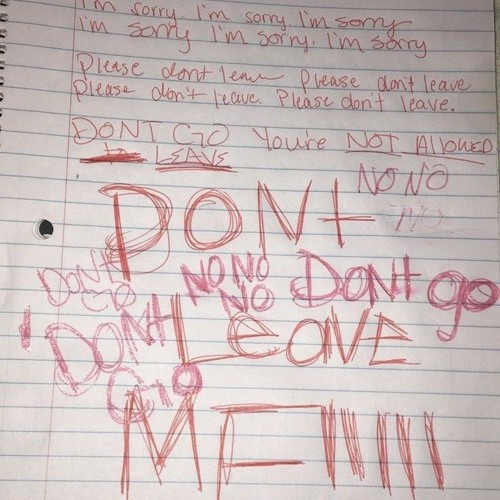 I'm sorry. I'm sorry. I'm sorry
I'm sorry I'm sorry. I'm sorry
Please dont leave Please don't leave
Please don't leave. Please don't leave.
DONT GO You're NOT ALLOWED
to LEAVE
NO NO
NO
DONT
DONT GO
NO NO NO
DONt go
LEAVE
DONT GO
ME!!!!!!